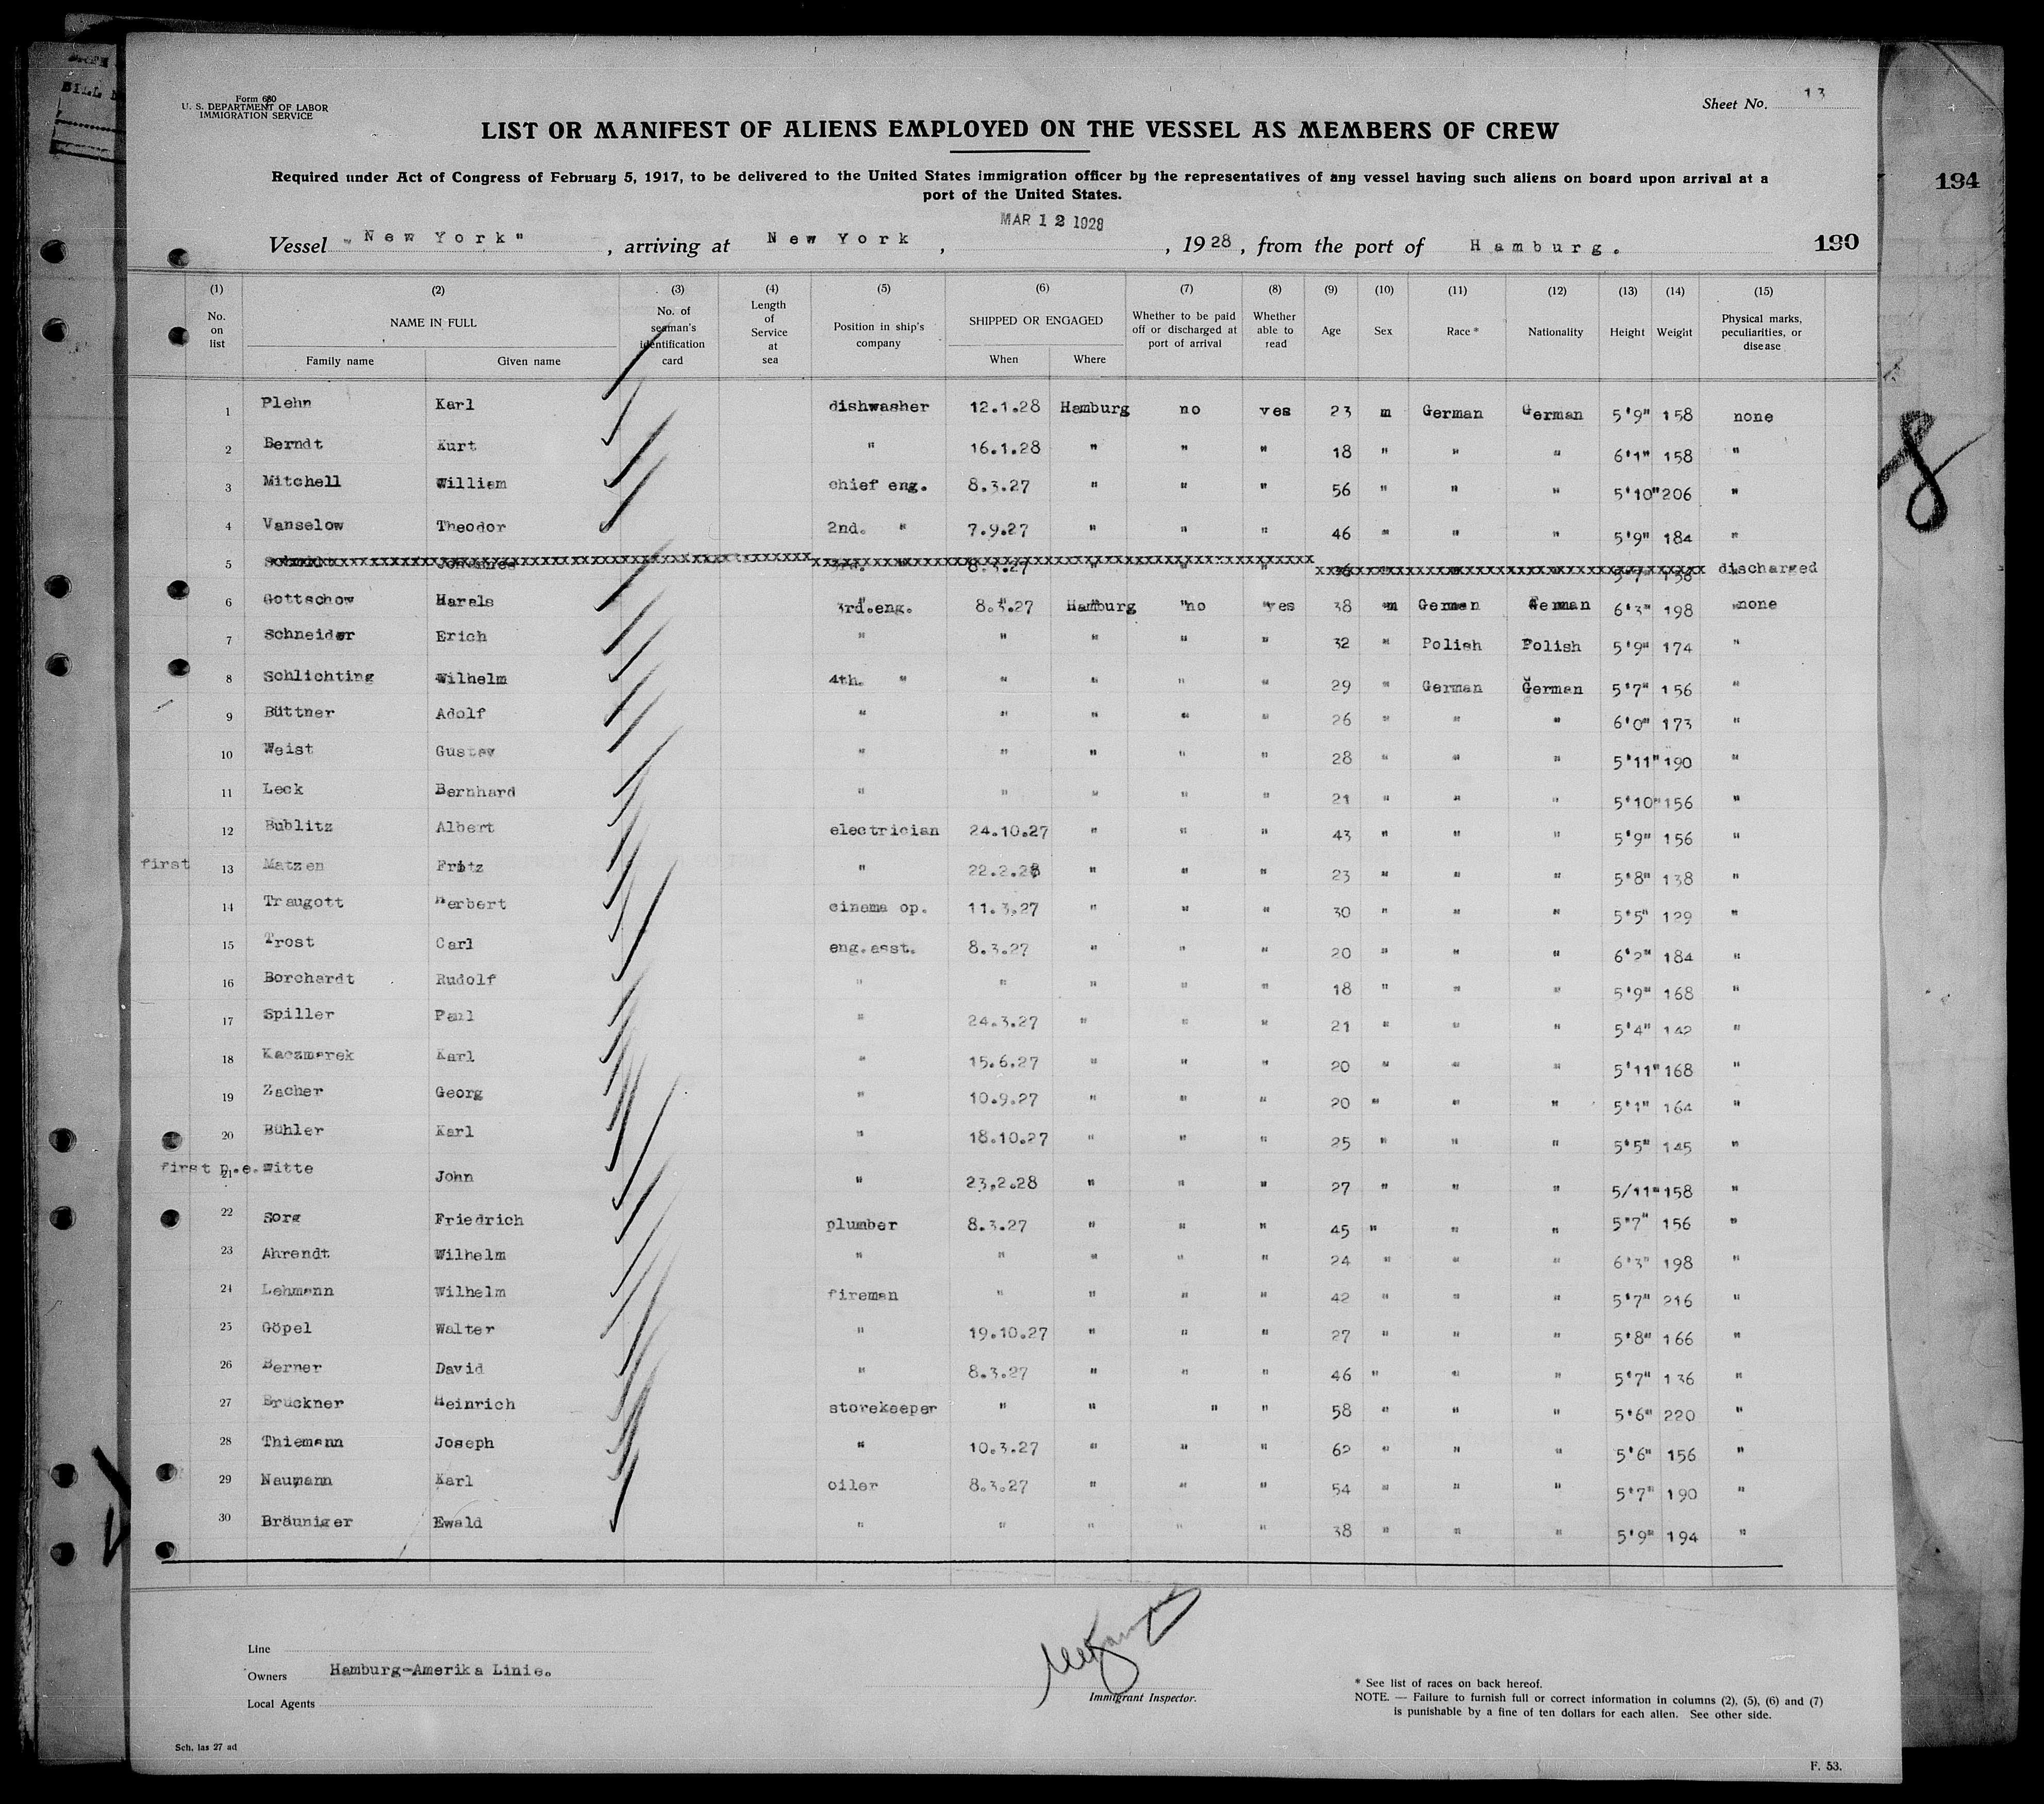 Form 680
U. S. DEPARTMENT OF LABOR
IMMIGRATION SERVICE
Sheet No. 13
LIST OR MANIFEST OF ALIENS EMPLOYED ON THE VESSEL AS MEMBERS OF CREW
Required under Act of Congress of February 5, 1917, to be delivered to the United States immigration officer by the representatives of any vessel having such aliens on board upon arrival at a
port of the United States.
194
MAR 12 1928
Vessel „New York" , arriving at New York , , 1928, from the port of Hamburg. 190
(1) (2) (3) (4) (5) (6) (7) (8) (9) (10) (11) (12) (13) (14) (15)
No. on list NAME IN FULL Family name Given name No. of seaman's identification card Length of Service at sea Position in ship's company SHIPPED OR ENGAGED When Where Whether to be paid off or discharged at port of arrival Whether able to read Age Sex Race* Nationality Height Weight Physical marks, peculiarities, or disease
1 Plehn Karl dishwasher 12.1.28 Hamburg no yes 23 m German German 5'9" 158 none
2 Berndt Kurt " 16.1.28 " " " 18 " " " 6'1" 158 "
3 Mitchell William chief eng. 8.3.27 " " " 56 " " " 5'10" 206 "
4 Vanselow Theodor 2nd. " 7.9.27 " " " 46 " " " 5'9" 184 "
5 Johannes 3rd. " 8.3.27 " " " 36 " " " 5'7" 158 discharged
6 Gottschow Harals 3rd.eng. 8.3.27 Hamburg no yes 38 m German German 6'3" 198 none
7 Schneider Erich " " " " " 32 " Polish Polish 5'9" 174 "
8 Schlichting Wilhelm 4th. " " " " " 29 " German German 5'7" 156 "
9 Büttner Adolf " " " " " 26 " " " 6'0" 173 "
10 Weist Gustav " " " " " 28 " " " 5'11" 190 "
11 Leck Bernhard " " " " " 21 " " " 5'10" 156 "
12 Bublitz Albert electrician 24.10.27 " " " 43 " " " 5'9" 156 "
first 13 Matzen Fritz " 22.2.28 " " " 23 " " " 5'8" 138 "
14 Traugott Herbert cinema op. 11.3.27 " " " 30 " " " 5'5" 129 "
15 Trost Carl eng.asst. 8.3.27 " " " 20 " " " 6'2" 184 "
16 Borchardt Rudolf " " " " " 18 " " " 5'9" 168 "
17 Spiller Paul " 24.3.27 " " " 21 " " " 5'4" 142 "
18 Kaczmarek Karl " 15.6.27 " " " 20 " " " 5'11" 168 "
19 Zacher Georg " 10.9.27 " " " 20 " " " 5'1" 164 "
20 Bühler Karl " 18.10.27 " " " 25 " " " 5'5" 145 "
first p.e. 21 Witte John " 23.2.28 " " " 27 " " " 5/11" 158 "
22 Sorg Friedrich plumber 8.3.27 " " " 45 " " " 5"7" 156 "
23 Ahrendt Wilhelm " " " " " 24 " " " 6'3" 198 "
24 Lehmann Wilhelm fireman " " " " 42 " " " 5'7" 216 "
25 Göpel Walter " 19.10.27 " " " 27 " " " 5'8" 166 "
26 Berner David " 8.3.27 " " " 46 " " " 5'7" 136 "
27 Bruckner Heinrich storekeeper " " " " 58 " " " 5'6" 220 "
28 Thiemann Joseph " 10.3.27 " " " 62 " " " 5'6" 156 "
29 Naumann Karl oiler 8.3.27 " " " 54 " " " 5'7" 190 "
30 Bräuniger Ewald " " " " " 38 " " " 5'9" 194 "
8
Line
Owners Hamburg-Amerika Linie.
Local Agents
Immigrant Inspector.
* See list of races on back hereof.
NOTE. — Failure to furnish full or correct information in columns (2), (5), (6) and (7)
is punishable by a fine of ten dollars for each alien. See other side.
Sch. las 27 ad
F. 53.